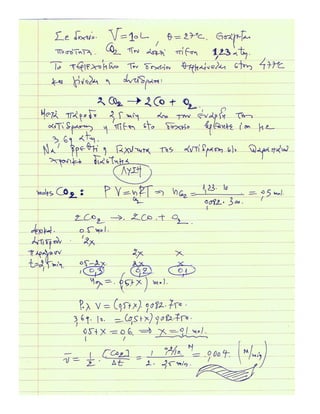 Σε δοχείο V=10L, θ=27°C, εισάγεται
ποσότητα CO₂ που ασκεί πίεση 1,23 atm.
Το περιεχόμενο του δοχείου θερμαίνεται στους 477°C
και γίνεται η αντίδραση:
2CO₂ → 2CO + O₂.
Μετά πάροδο 2,5 min από την έναρξη της
αντίδρασης η πίεση στο δοχείο βρέθηκε ίση με
3,69 atm.
Να βρεθεί η ταχύτητα της αντίδρασης στο παραπάνω
χρονικό διάστημα
ΛΥΣΗ
moles CO₂: PV=nRT ⇒ n CO₂ = 1,23.10 / 0,082.300 = 0,5 mol.
2CO₂ → 2CO + O₂
αρχικά. 0,5 mol.
αντιδρούν. 2x
παράγονται 2x x
t=2,5 min. 0,5-2x 2x x
0,3 0,2 0,1
nολ = (0,5+x) mol.
Pολ V = (0,5+x) 0,082.750.
3,69.10 = (0,5+x) 0,082.750.
0,5+x = 0,6 ⇒ x=0,1 mol.
v̄ = 1/2 . [CO₂]/Δt = 1/2 . 0,2/10 M / 2,5 min = 0,004 (M/min)